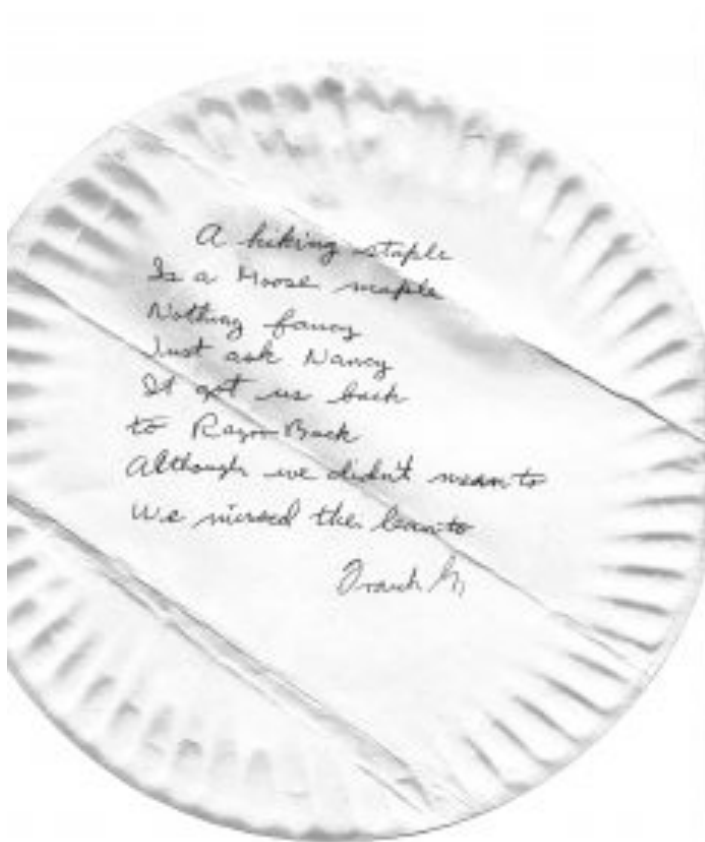 A hiking staple
Is a Moose maple
Nothing fancy
Just ask Nancy
It got us back
to Razor Back
Although we didn't mean to
We missed the leanto
Frank